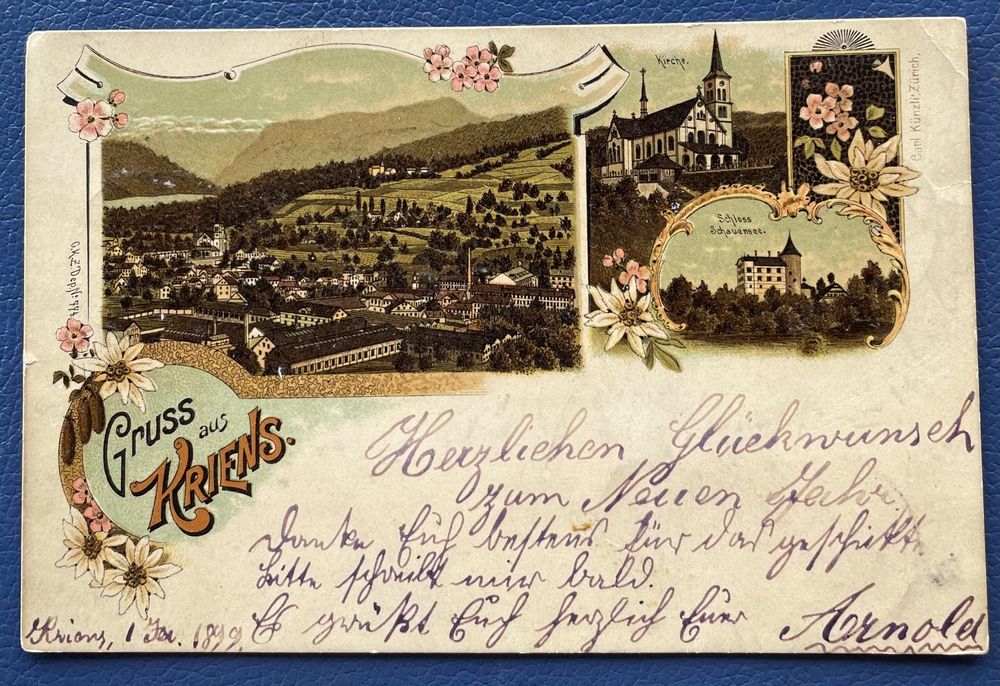 Kirche.
Carl Künzli, Zürich.
Schloss
Schauensee.
Gruss aus
KRIENS.
Herzlichen Glückwunsch
zum Neuen Jahr.
Danke Euch bestens für das geschickte
bitte schreibt mir bald.
Es grüßt Euch herzlich Euer Arnold
Kriens, 1 Jan. 1899